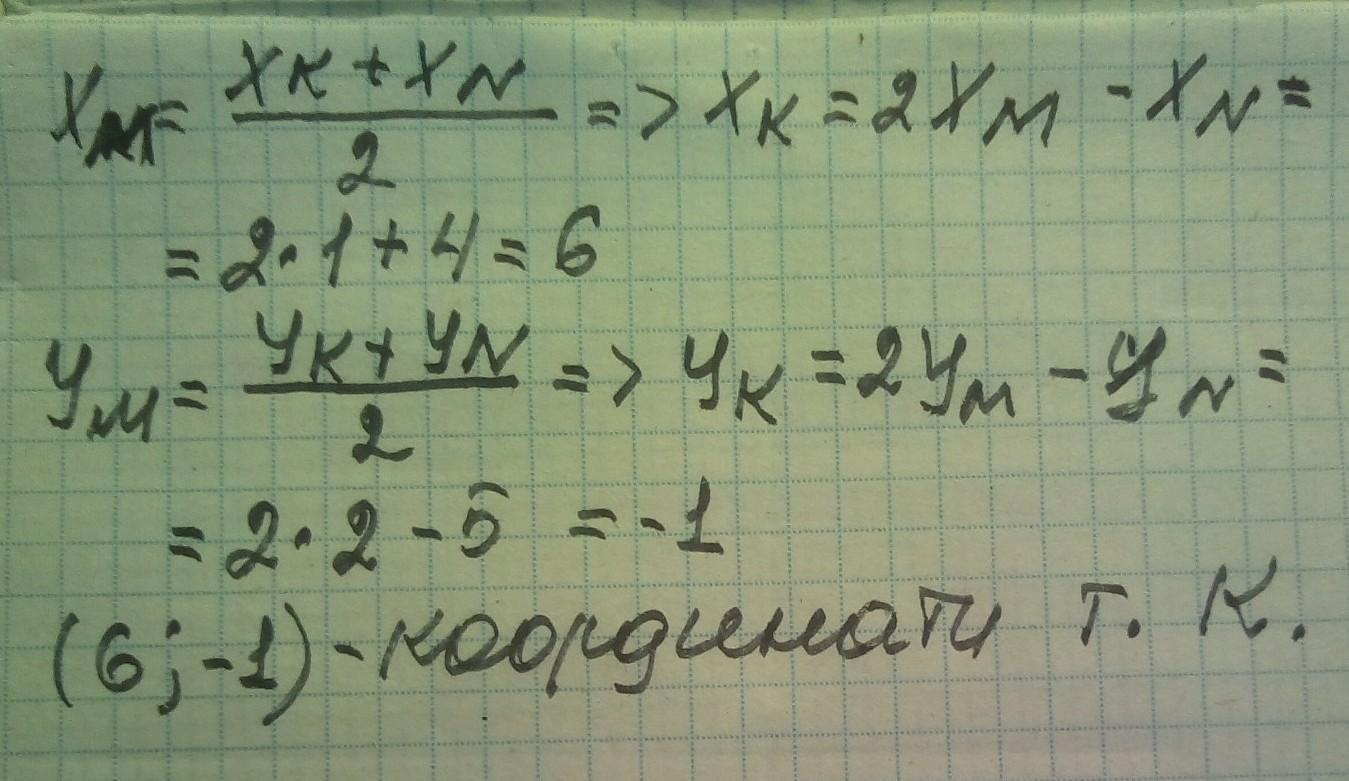 Xм = (Xк + XN)/2 => Xк = 2Xм - XN =
= 2·1 + 4 = 6
Yм = (Yк + YN)/2 => Yк = 2Yм - YN =
= 2·2 - 5 = -1
(6; -1) - координати т. К.